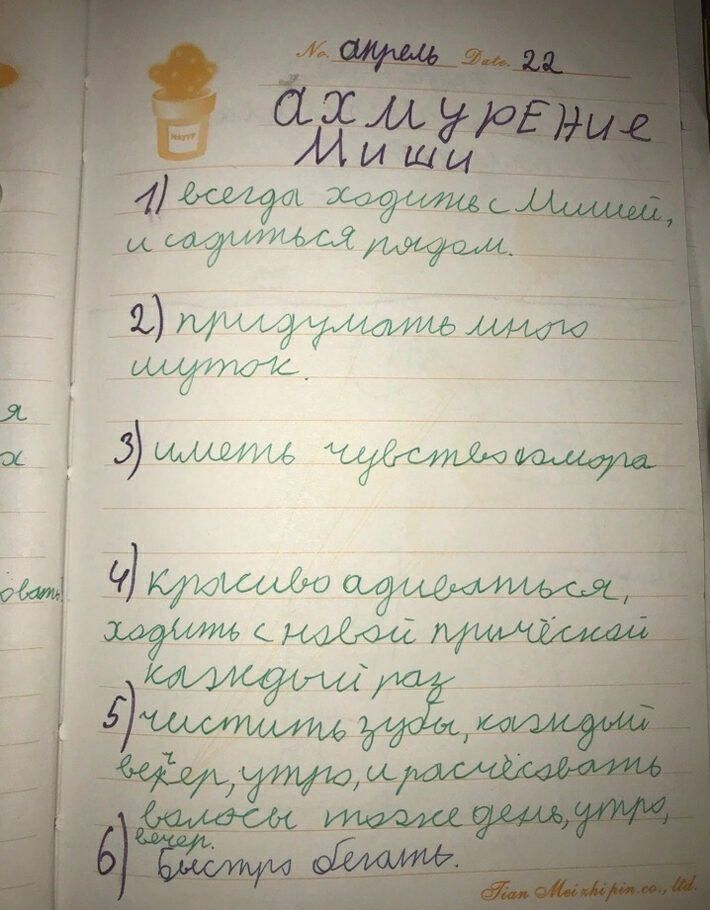 No. апрель Date. 22
Hayyp
АХМУРЕНИЕ
МИШИ
1) всегда ходить с Мишей,
и садиться рядом.
2) придумать много
шуток.
3) иметь чувство юмора
4) красиво адиваться,
ходить с новой причёской
каждый раз
5) чистить зубы, каждый
вечер, утро, и расчёсовать
волосы тоже день, утро,
вечер.
6) Быстро бегать.
я
х
овать!
Tian Mei zhi pin co., ltd.